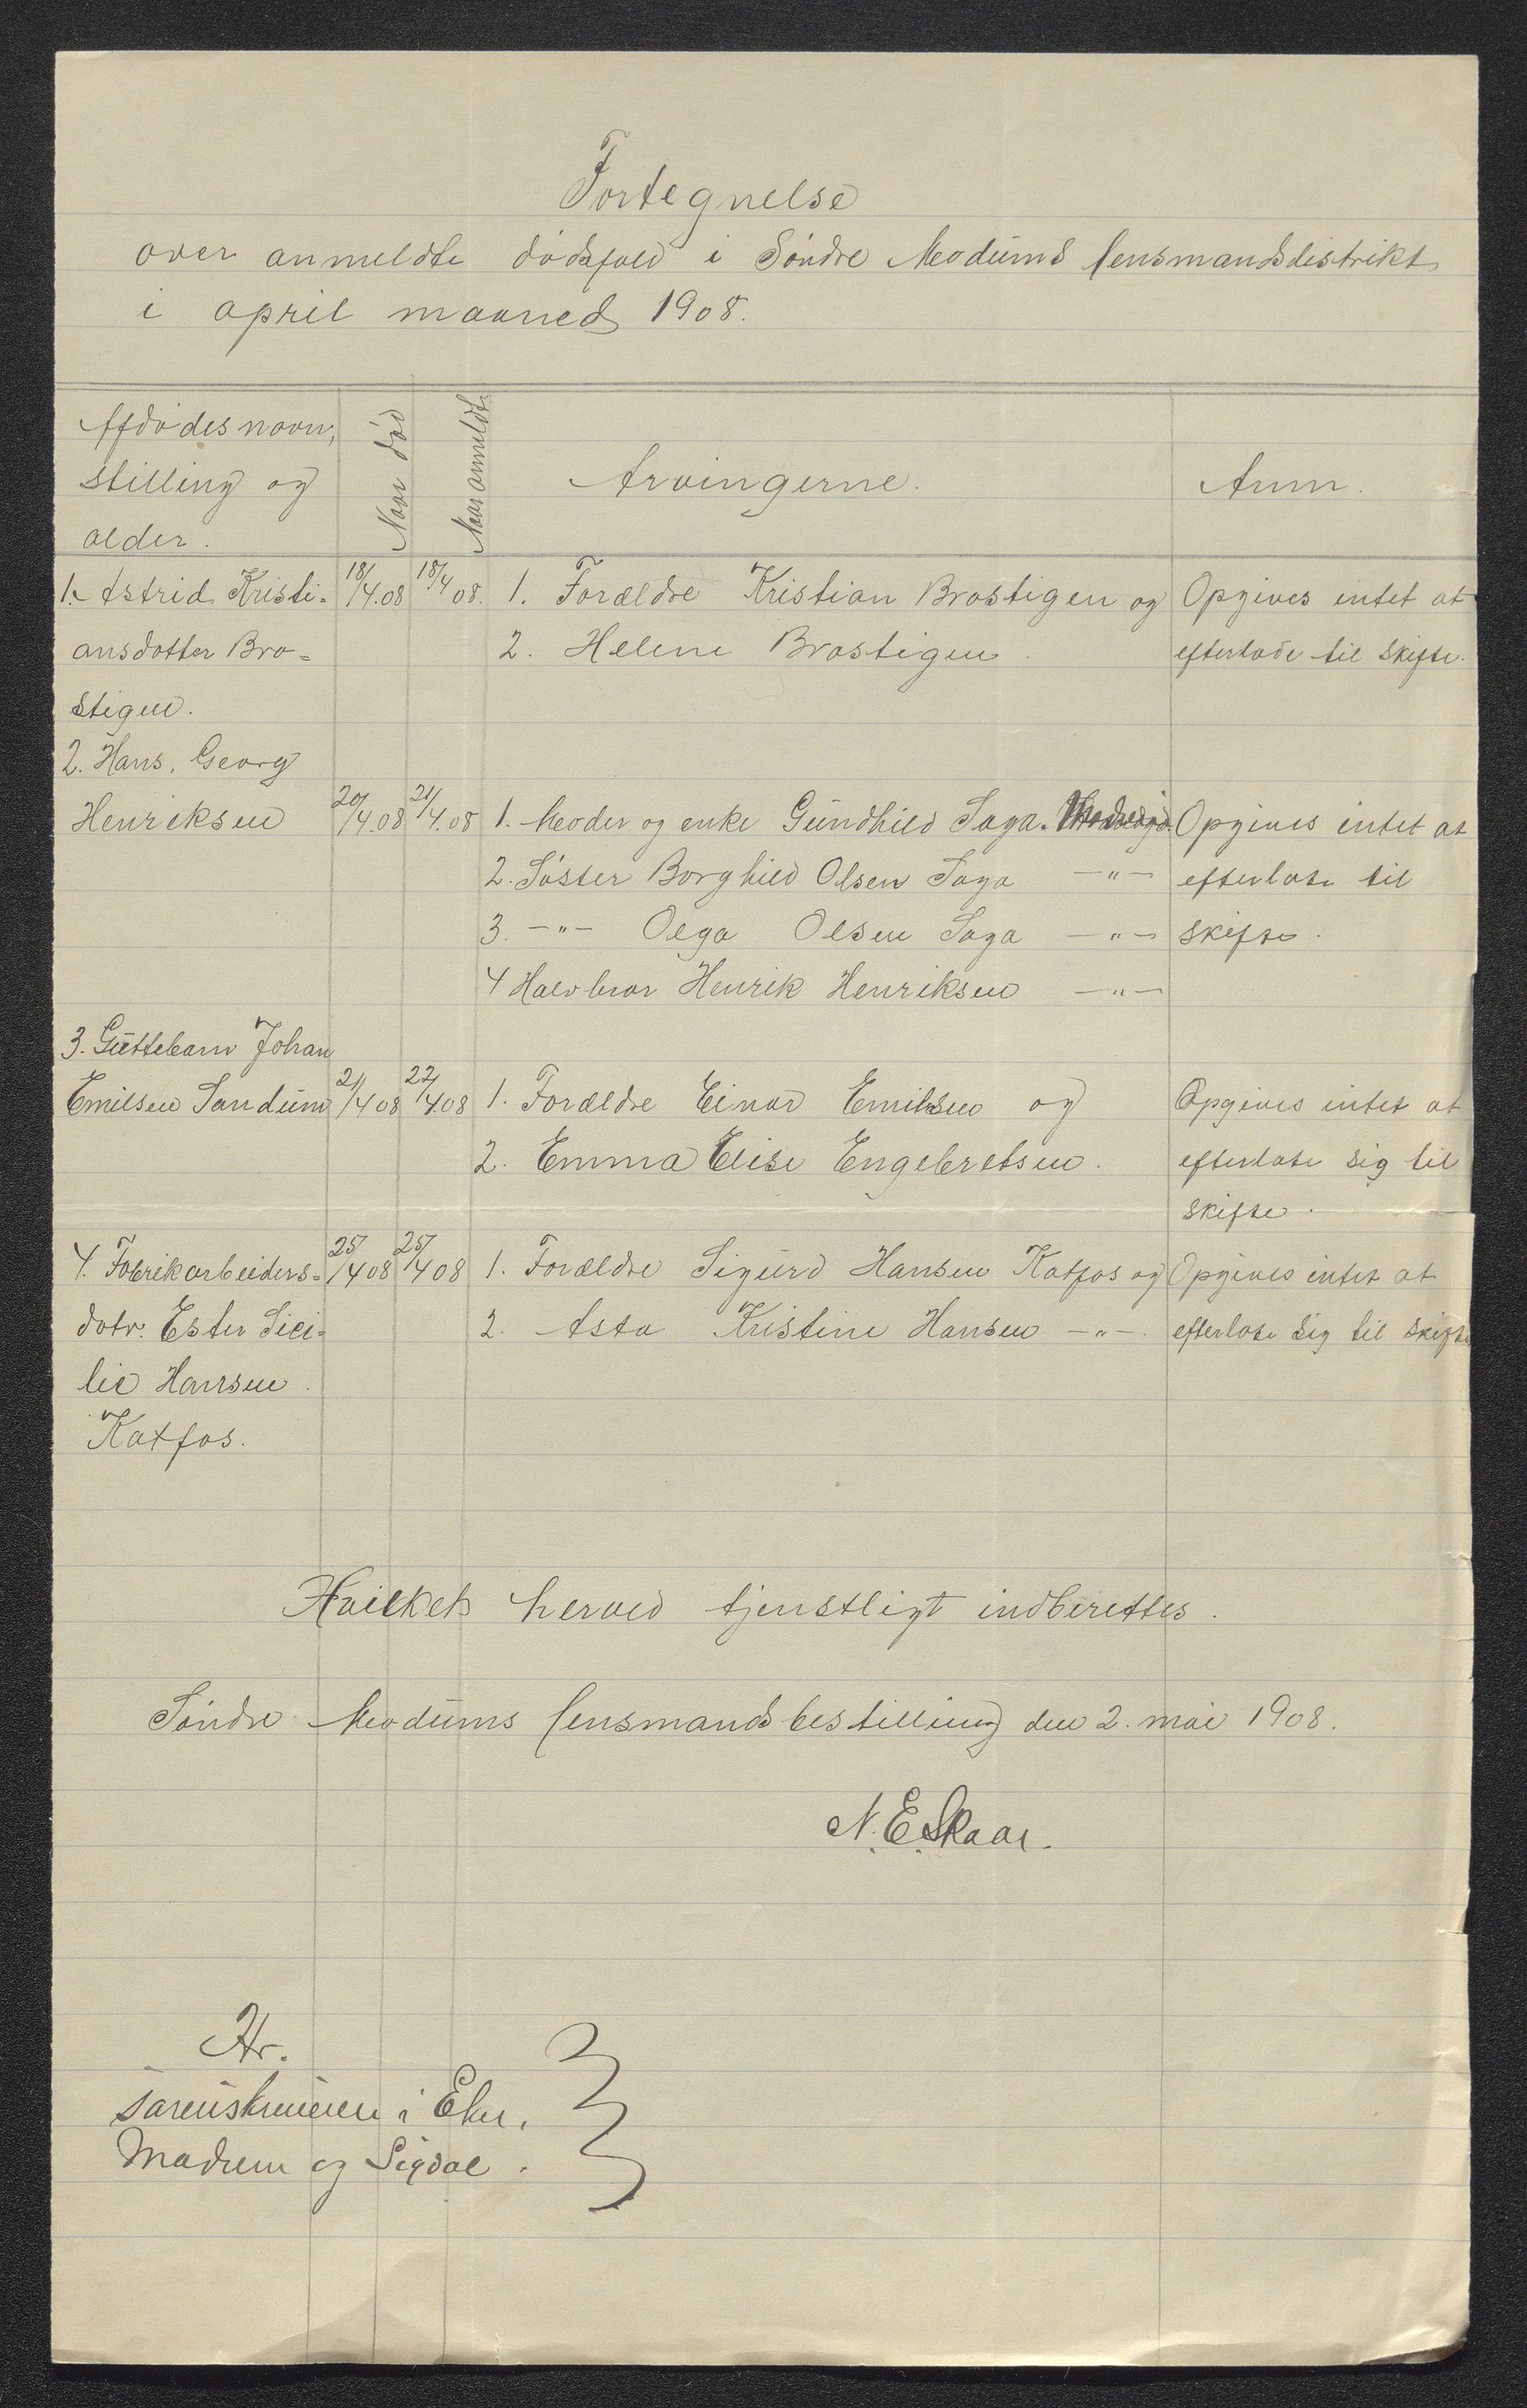 Fortegnelse
over anmeldte dödsfald i Söndre Modums lensmandsdistrikt
i april maaned 1908.
Afdödes navn,
stilling og
alder.
Naar död
Naar anmeldt
Arvingerne.
Anm.
1. Astrid Kristi- 18/4.08 18/4 08. 1. Forældre Kristian Brastigen og Opgives intet at
ansdatter Bra- 2. Helene Brastigen. efterlade til skifte.
stigen.
2. Hans, Georg
Henriksen 20/4.08 21/4.08 1. Moder og enke Gundhild Saga. Opgives intet at
2. Söster Borghild Olsen Saga -"- efterlate til
3. -"- Olga Olsen Saga -"- skifte.
4 Halvbror Henrik Henriksen -"-
3. Guttebarn Johan
Emilsen Sandum 21/4 08 22/4.08 1. Forældre Einar Emilsen og Opgives intet at
2. Emma Elise Engebretsen. efterlate sig til
skifte.
4. Fabrikarbeiders- 25/4 08 25/4 08 1. Forældre Sigurd Hansen Katfos og Opgives intet at
datr. Ester Sici- 2. Asta Kristine Hansen -"-. efterlate sig til skifte
lie Hansen.
Katfos.
Hvilket herved tjenstligt indberettes.
Söndre Modums lensmandsbestilling den 2. mai 1908.
N. E. Skaar.
Hr.
sorenskriveren i Eker,
Modum og Sigdal.